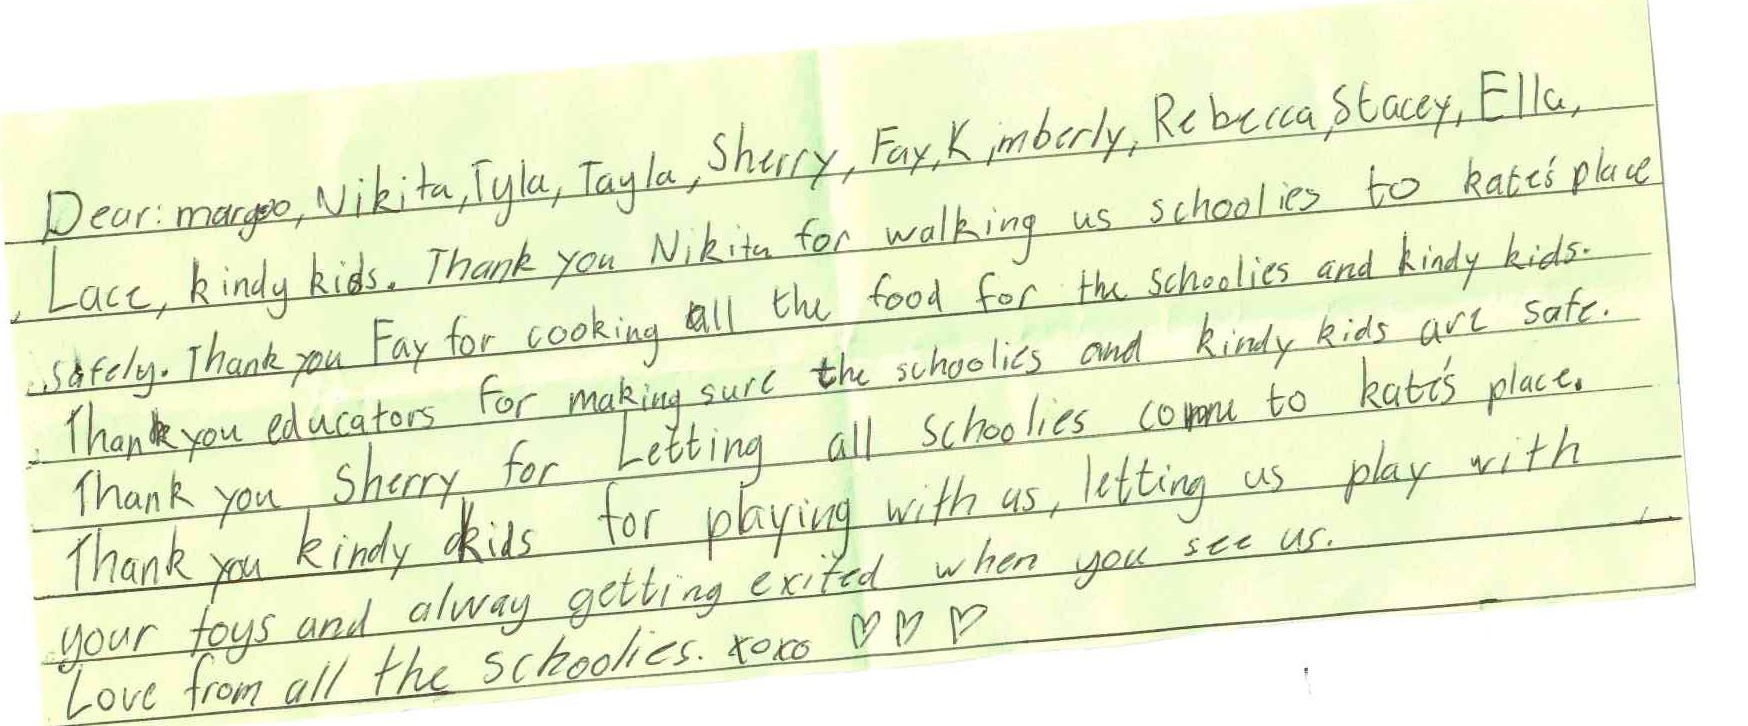 Dear: margoo, Nikita, Tyla, Tayla, Sherry, Fay, Kimberly, Rebecca, Stacey, Ella,
Lace, kindy kids. Thank you Nikita for walking us schoolies to kate's place
safely. Thank you Fay for cooking all the food for the schoolies and kindy kids.
Thank you educators for making sure the schoolies and kindy kids are safe.
Thank you Sherry for Letting all schoolies come to kate's place.
Thank you kindy kids for playing with us, letting us play with
your toys and alway getting exited when you see us.
Love from all the schoolies. xoxo ♡♡♡